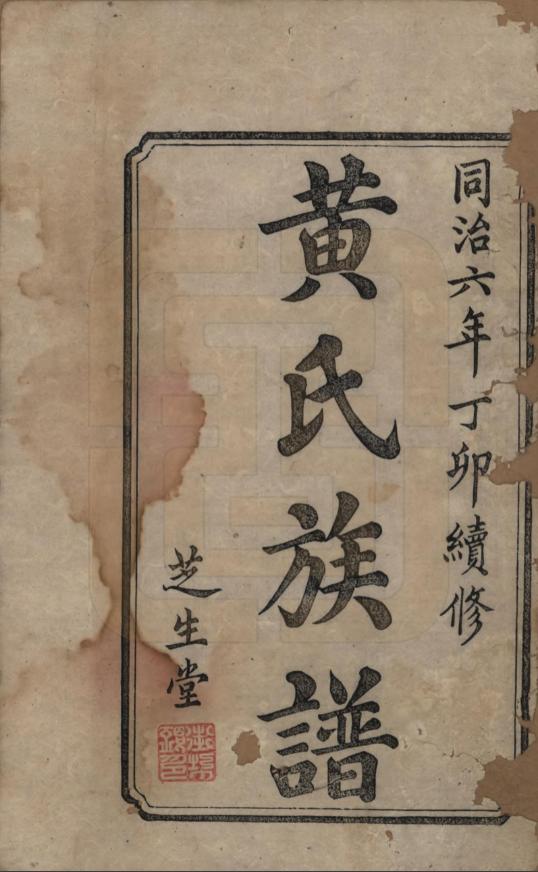 同治六年丁卯續修
黄氏族譜
芝生堂